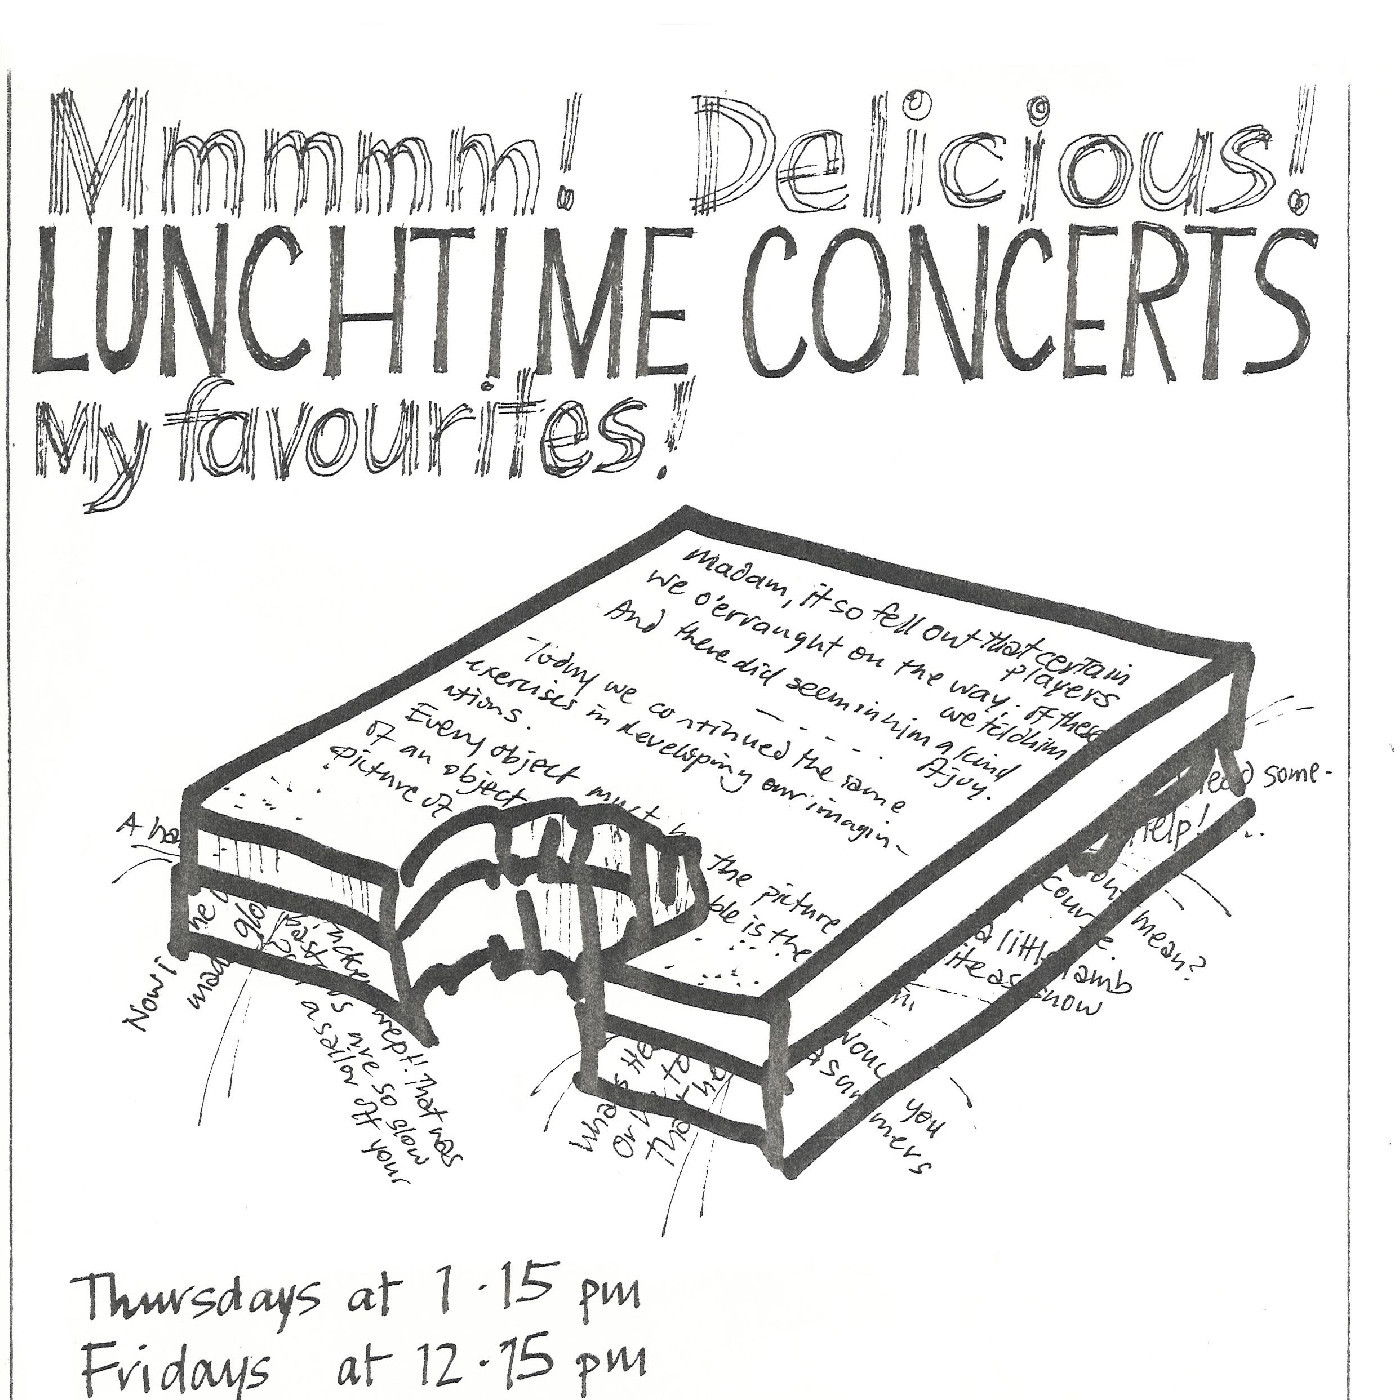 Mmmmm! Delicious!
LUNCHTIME CONCERTS
My favourites!
Madam, it so fell out that certain
players
We o'erraught on the way. Of these
we told him
And there did seem in him a kind
of joy.
Today we continued the same
exercises in developing our imagin-
ations.
Every object must h the picture
of an object ble is the
picture of
A ha
Now i
mad
he
glo
wept! That was
s are so slow
a sailor off your
What
or
to
that he
ead some-
help!
you mean?
course.
a little lamb
ite as snow
you
a summers
Thursdays at 1.15 pm
Fridays at 12.15 pm